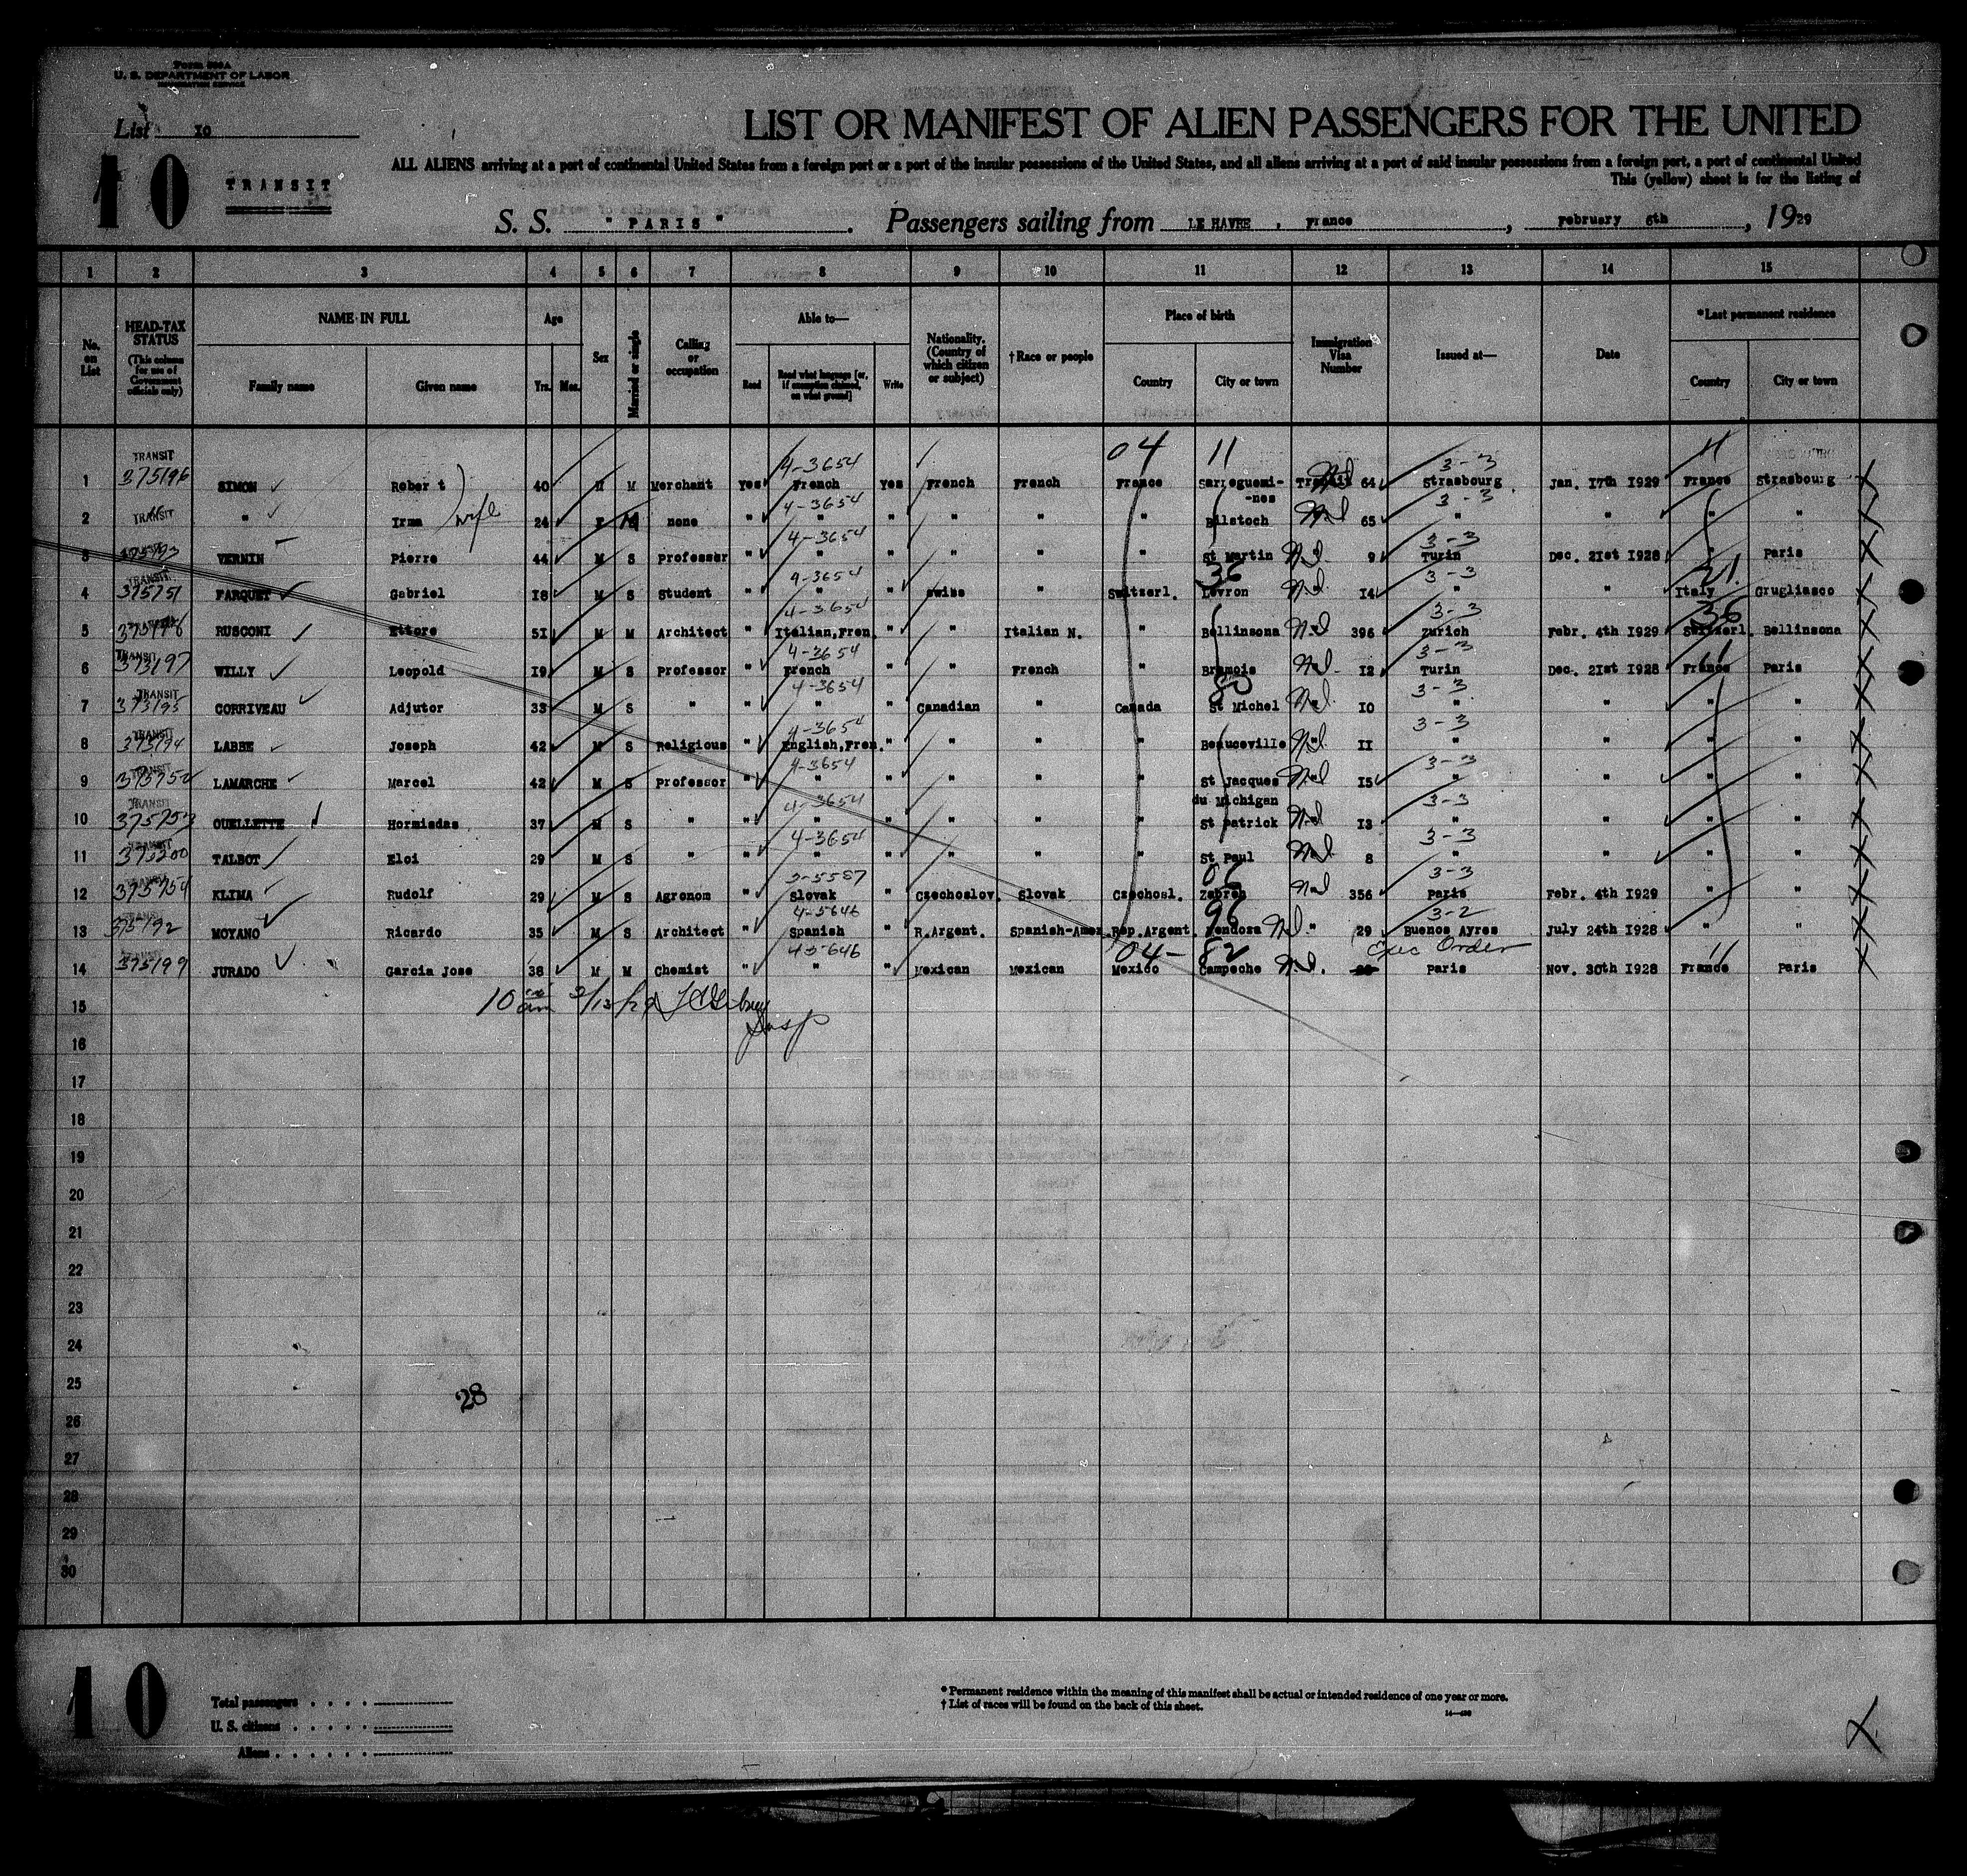 Form 500A
U. S. DEPARTMENT OF LABOR
IMMIGRATION SERVICE
List 10
10
TRANSIT
LIST OR MANIFEST OF ALIEN PASSENGERS FOR THE UNITED
ALL ALIENS arriving at a port of continental United States from a foreign port or a port of the insular possessions of the United States, and all aliens arriving at a port of said insular possessions from a foreign port, a port of continental United
This (yellow) sheet is for the listing of
S. S. " PARIS ". Passengers sailing from LE HAVRE , France , February 6th , 1929
1 2 3 4 5 6 7 8 9 10 11 12 13 14 15
No. on List
HEAD-TAX STATUS (This column for use of Government officials only)
NAME IN FULL Family name Given name
Age Yrs. Mos.
Sex
Married or single
Calling or occupation
Able to— Read Read what language [or, if exemption claimed, on what ground] Write
Nationality. (Country of which citizen or subject)
† Race or people
Place of birth Country City or town
Immigration Visa Number
Issued at—
Date
*Last permanent residence Country City or town
04 11 11
TRANSIT 4-3654 3-3
1 375196 SIMON Robert 40 M M Merchant Yes French Yes French French France Sarreguemi- Transit 64 Strasbourg Jan. 17th 1929 France Strasbourg
-nes
4-3654 3-3
2 TRANSIT " Irma wife 24 F M none " " " " " " Bilstoch 65 " " " "
4-3654 3-3
3 VERNIN Pierre 44 M S Professor " " " " " " St Martin 9 Turin Dec. 21st 1928 " Paris
TRANSIT 4-3654 36 3-3 21
4 375751 FARQUET Gabriel 18 M S Student " " " swiss " Switzerl. Levron 14 " " Italy Grugliasco
4-3654 3-3 36
5 RUSCONI Ettore 51 M M Architect " Italian,Fren. " " Italian N. " Bellinsona 396 Zurich Febr. 4th 1929 Switzerl. Bellinsona
TRANSIT 4-3654 3-3
6 375197 WILLY Leopold 19 M S Professor " French " " French " Bramois 12 Turin Dec. 21st 1928 France Paris
TRANSIT 4-3654 3-3
7 375195 CORRIVEAU Adjutor 33 M S " " " " Canadian " Canada St Michel " 10 " " " "
TRANSIT 4-3654 3-3
8 375194 LABBE Joseph 42 M S Religious " English,Fren. " " " " Beauceville " 11 " " " "
TRANSIT 4-3654 3-3
9 375752 LAMARCHE Marcel 42 M S Professor " " " " " " St Jacques 15 " " " "
du Michigan
TRANSIT 4-3654 3-3
10 375753 OUELLETTE Hormisdas 37 M S " " " " " " " St Patrick 13 " " " "
4-3654 3-3
11 375200 TALBOT Eloi 29 M S " " " " " " " St Paul 8 " " " "
3-3
12 375754 KLIMA Rudolf 29 M S Agronom " Slovak " Czechoslov. Slovak Czechosl. Zabreh 356 Paris Febr. 4th 1929 " "
4-5646 96 3-2
13 375192 MOYANO Ricardo 35 M S Architect " Spanish " R.Argent. Spanish-Amer. Rep.Argent. Mendoza " 29 Buenos Ayres July 24th 1928 " "
4-5646 04 - 82 Exec Order 11
14 375199 JURADO Garcia Jose 38 M M Chemist " " " Mexican Mexican Mexico Campeche Paris Nov. 30th 1928 France Paris
10 am 2/13/29
15 Insp
16
17
18
19
20
21
22
23
24
25
28
26
27
28
29
30
10
Total passengers . . . .
U. S. citizens . . . . .
Aliens . . . . . .
* Permanent residence within the meaning of this manifest shall be actual or intended residence of one year or more.
† List of races will be found on the back of this sheet.